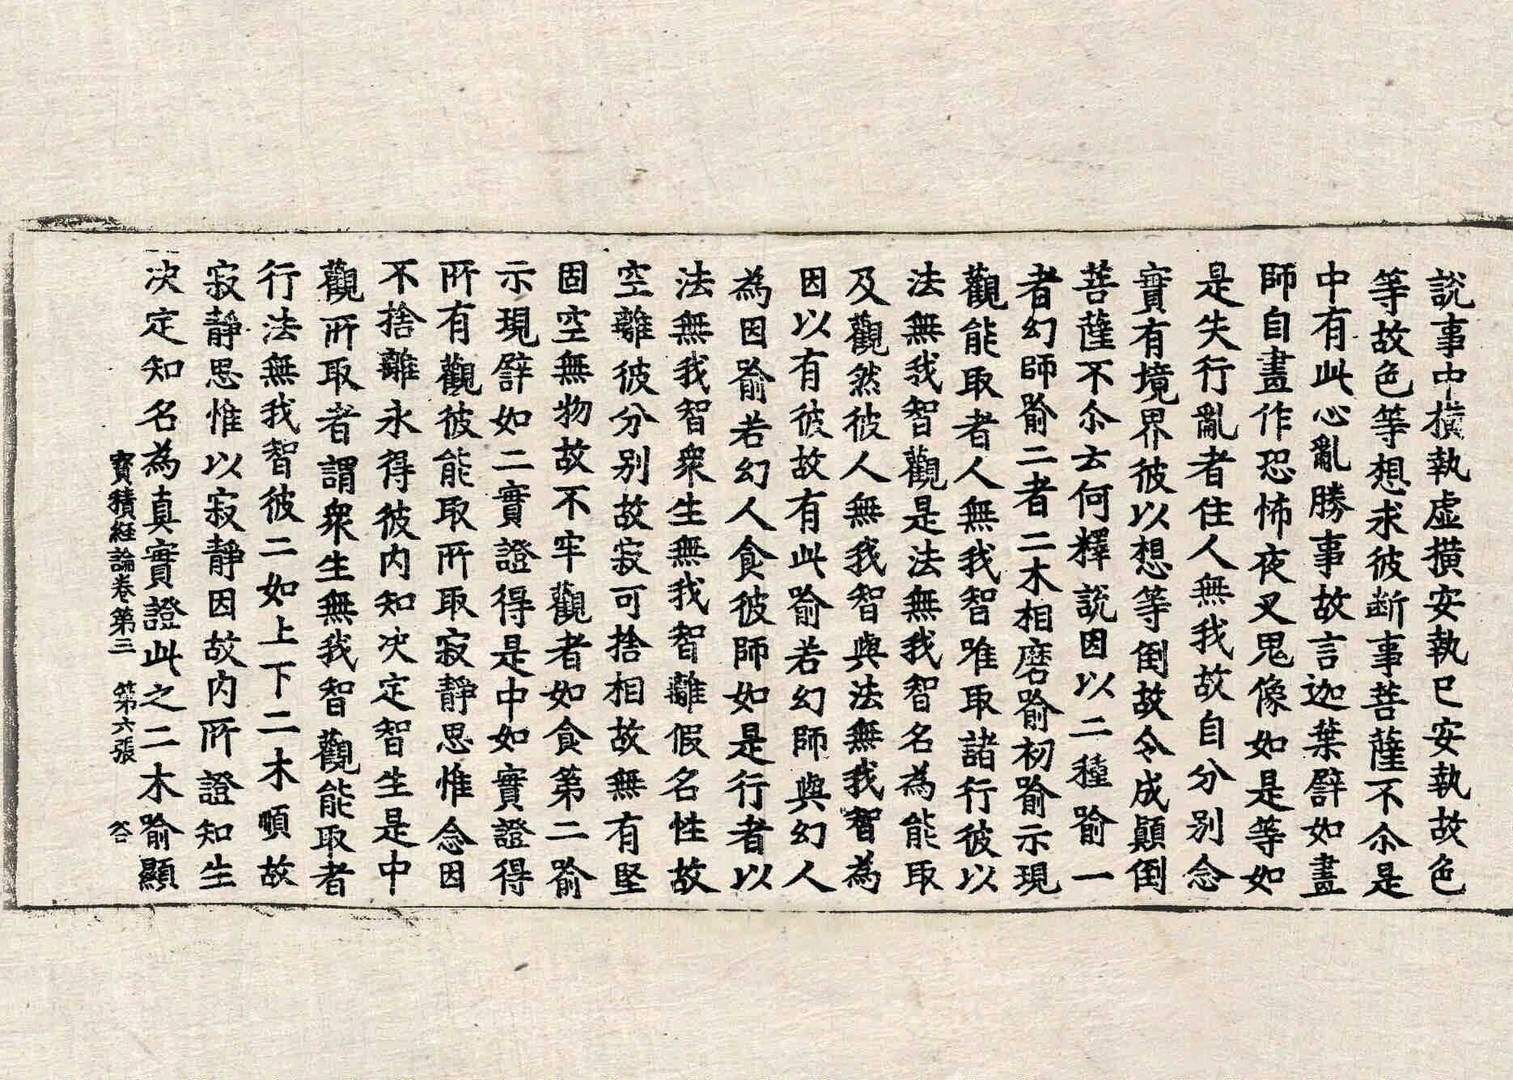 説事中橫執虛橫安執已安執故色
等故色等想求彼斷事菩薩不尒是
中有此心亂勝事故言迦葉譬如畫
師自畫作恐怖夜叉鬼像如是等如
是失行亂者住人無我故自分別念
實有境界彼以想等倒故令成顛倒
菩薩不尒去何釋説因以二種喻一
者幻師喻二者二木相磨喻初喻示現
觀能取者人無我智唯取諸行彼以
法無我智觀是法無我智名為能取
及觀然彼人無我智與法無我智為
因以有彼故有此喻若幻師與幻人
為因喻若幻人食彼師如是行者以
法無我智衆生無我智離假名性故
空離彼分別故寂可捨相故無有堅
固空無物故不牢觀者如食第二喻
示現譬如二實證得是中如實證得
所有觀彼能取所取寂靜思惟念因
不捨離永得彼内知决定智生是中
觀所取者謂衆生無我智觀能取者
行法無我智彼二如上下二木順故
寂靜思惟以寂靜因故内所證知生
决定知名為真實證此之二木喻顯
寶積經論卷第三 第六張 荅